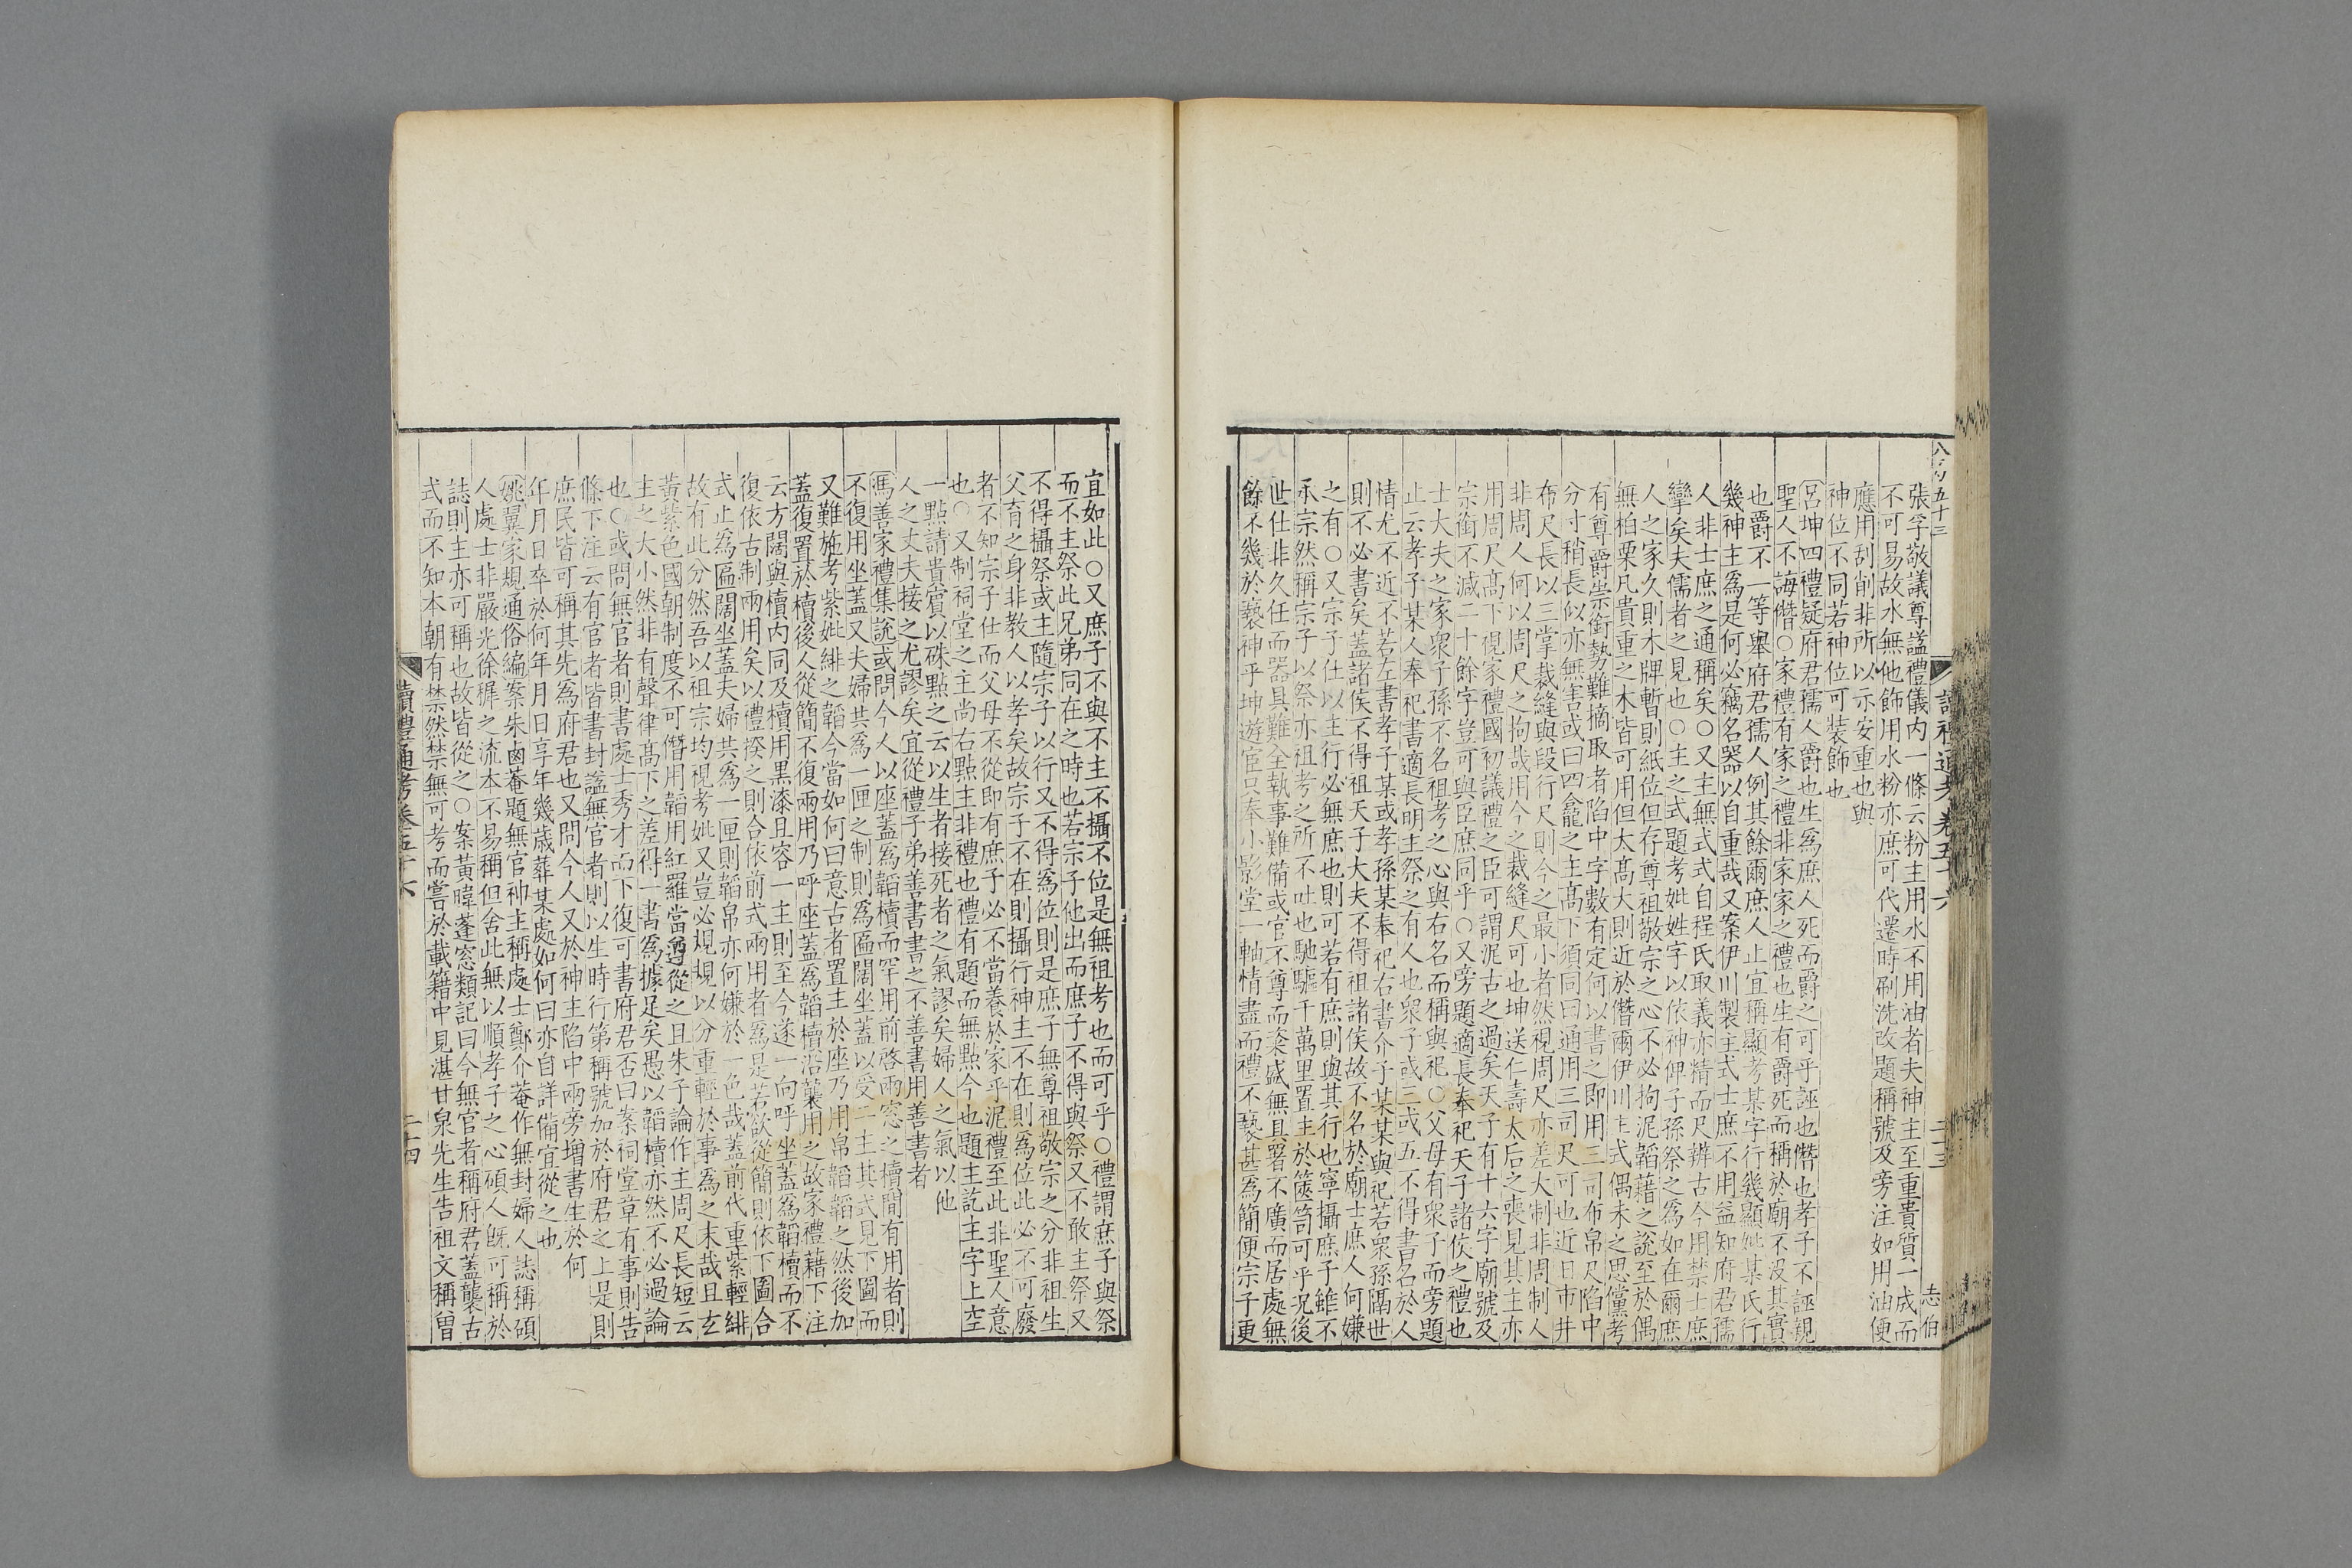 張孚敬議尊謚禮儀内一條云粉主用水不用油者夫神主至重貴質一成而
不可易故水無他飾用水粉亦庶可代遷時刷洗改題稱號及旁注如用油便
應用刮削非所以示安重也與
神位不同若神位可裝飾也
呂坤四禮疑府君孺人爵也生爲庶人死而爵之可乎誣也僭也孝子不誣親
聖人不誨僭○家禮有家之禮非家家之禮也生有爵死而稱於廟不没其實
也爵不一等舉府君孺人例其餘爾庶人止宜稱顯考某字行幾顯妣某氏行
幾神主爲是何必竊名器以自重哉又案伊川製主式士庶不用益知府君孺
人非士庶之通稱矣○又主無式式自程氏取義亦精而尺辨古今用禁士庶
攣矣夫儒者之見也○主之式題考妣姓字以依神俾子孫祭之爲如在爾庶
人之家久則木牌暫則紙位但存尊祖敬宗之心不必拘泥韜藉之說至於偶
無柏栗凡貴重之木皆可用但太髙大則近於僭爾伊川主式偶未之思儻考
有尊爵崇銜勢難摘取者陷中字數有定何以書之即用三司布帛尺陷中
分寸稍長似亦無害或曰四龕之主髙下須同曰通用三司尺可也近日市井
布尺長長以三掌裁縫與段行尺則今之最小者然視周尺亦差大制非周制人
非周人何以周尺之拘哉用今之裁縫尺可也坤送仁壽太后之喪見其主亦
用周尺髙下視家禮國初議禮之臣可謂泥古之過矣天子有十六字廟號及
宗銜不减二十餘字豈可與臣庶同乎○又旁題適長奉祀天子諸侯之禮也
士大夫之家衆子孫不名祖考之心與右名而稱與祀○父母有衆子而旁題
止云孝子某人奉祀書適長明主祭之有人也衆子或三或五不得書名於人
情尤不近不若左書孝子某或孝孫某奉祀右書介子某某與祀若衆孫隔世
則不必書矣蓋諸侯不得祖天子大夫不得祖諸侯故不名於廟士庶人何嫌
之有○又宗子仕以主行必無庶也則可若有庶則與其行也寧攝庶子雖不
承宗然稱宗子以祭亦祖考之所不吐也馳驅千萬里置主於篋笥可乎况後
世仕非久任而器具難全執事難備或官不尊而粢盛無且署不廣而居處無
餘不幾於褻神乎坤遊宦只奉小影堂一軸情盡而禮不褻甚爲簡便宗子更
宜如此○又庶子不與不主不攝不位是無祖考也而可乎○禮謂庶子與祭
而不主祭此兄弟同在之時也若宗子他出而庶子不得與祭又不敢主祭又
不得攝祭或主隨宗子以行又不得爲位則是庶子無尊祖敬宗之分非祖生
父育之身非教人以孝矣故宗子不在則攝行神主不在則爲位此必不可廢
者不知宗子仕而父母不從即有庶子必不當養於家乎泥禮至此非聖人意
也○又制祠堂之主尚右點主非禮也禮有題而無點今也題主訖主字上空
一點請貴賓以硃點之云以生者接死者之氣謬矣婦人之氣以他
人之丈夫接之尤謬矣宜從禮子弟善書書之不善書用善書者
馮善家禮集說或問今人以座蓋爲韜櫝而罕用前啓兩窓之櫝間有用者則
不復用坐蓋又夫婦共爲一匣之制則爲匾闊坐蓋以受二主其式見下圖而
又難施考紫妣緋之韜今當如何曰意古者置主於座乃用帛韜韜之然後加
蓋復置於櫝後人從簡不復兩用乃呼座蓋爲韜櫝沿襲用之故家禮藉下注
云方闊與櫝内同及櫝用黒漆且容一主則至今遂一向呼坐蓋爲韜櫝而不
復依古制兩用矣以禮揆之則合依前式兩用者爲是若欲從簡則依下圖合
式止爲匾闊坐蓋夫婦共爲一匣則韜帛亦何嫌於一色哉蓋前代重紫輕緋
故有此分然吾以祖宗均視考妣又豈必規規以分重輕於事爲之末哉且玄
黃紫色國朝制度不可僭用韜用紅羅當遵從之且朱子論作主周尺長短云
主之大小然非有聲律髙下之差得一書爲據足矣愚以韜櫝亦然不必過論
也○或問無官者則書處士秀才而下復可書府君否曰案祠堂章有事則告
條下注云有官者皆書封謚無官者則以生時行第稱號加於府君之上是則
庶民皆可稱其先爲府君也又問今人又於神主陷中兩旁增書生於何
年月日卒於何年月日享年幾歳葬某處如何曰亦自詳備宜從之也
姚翼家規通俗編案朱鹵菴題無官神主稱處士鄭介菴作無封婦人誌稱碩
人處士非嚴光徐穉之流本不易稱但舍此無以順孝子之心碩人旣可稱於
誌則主亦可稱也故皆從之○案黃暐蓬窓類記曰今無官者稱府君蓋襲古
式而不知本朝有禁然禁無可考而嘗於載籍中見湛甘泉先生告祖文稱曾
讀禮通考卷五十六
二十四